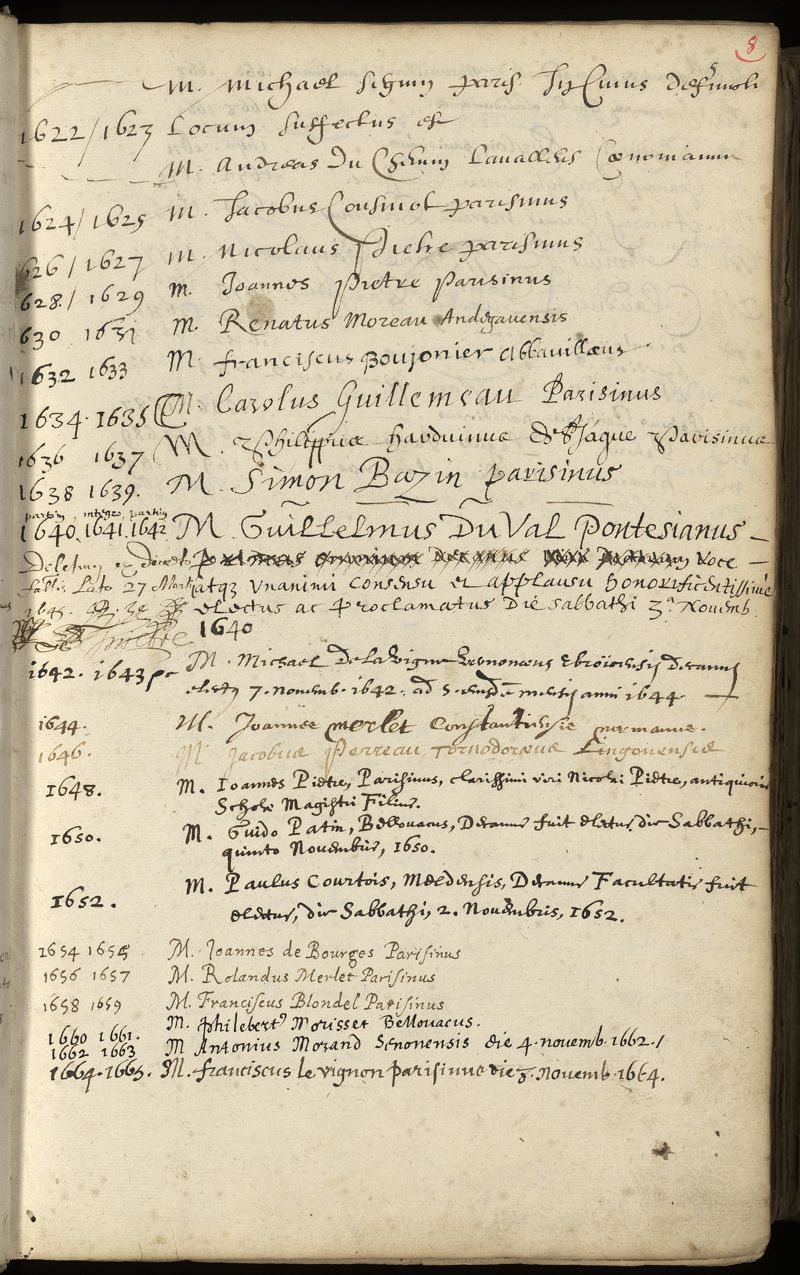 8
M. Michael Seguin paris. In Cuius defuncti
1622/1623 Locum suffectus est
M. Andreas Du Chemin Lavallensis Cœnomanus
1624/1625 M. Jacobus Cousinot parisinus
626/1627 M. Nicolaus Pietre parisinus
628/1629 M. Joannes Pietre Parisinus
630 1631 M. Renatus Moreau Andegavensis
1632 1633 M. franciscus Boujonier Abbavillæus
1634. 1635 M. Carolus Guillemeau Parisinus
1636 1637 M. Philippus harduinus de St Jaque Parisinus
1638 1639. M. Simon Bazin parisinus
partim integro partim
1640 1641. 1642 M. Guillelmus Du Val Pontesianus
Deletum ex decreto voce
27 Martii atqz unanimi consensu et applausu honorificentissime
electus ac proclamatus die sabbathi 3a Novemb
1640
1642. 1643 M. Michael De la vigne Vernonæus Ebroicensis decanus
electus 7. novemb. 1642. ad 5. mensis anni 1644
1644. M. Joannes merlet Constantiensis normanus.
1646. M. Jacobus Perreau Tornodoræus Lingonensis
1648. M. Ioannes Pietre, Parisinus, clarissimi viri Nicolai Pietre, antiquioris
Scholæ Magistri Filius.
1650. M. Guido Patin, Bellovacus, Decanus fuit electus, die Sabbathi,
quinto Novembris, 1650.
1652. M. Paulus Courtois, Meldensis, Decanus Facultatis fuit
electus, die Sabbathi, 2. Novembris, 1652.
1654 1655 M. Joannes de Bourges Parisinus
1656 1657 M. Rolandus Merlet Parisinus
1658 1659 M. Franciscus Blondel Parisinus
1660 1661. M. Philebert9 Morisset Bellovacus.
1662 1663 M Antonius Morand Senonensis die 4. novemb. 1662./
1664. 1665. M. franciscus le vignon parisinus die 3. Novemb. 1664.